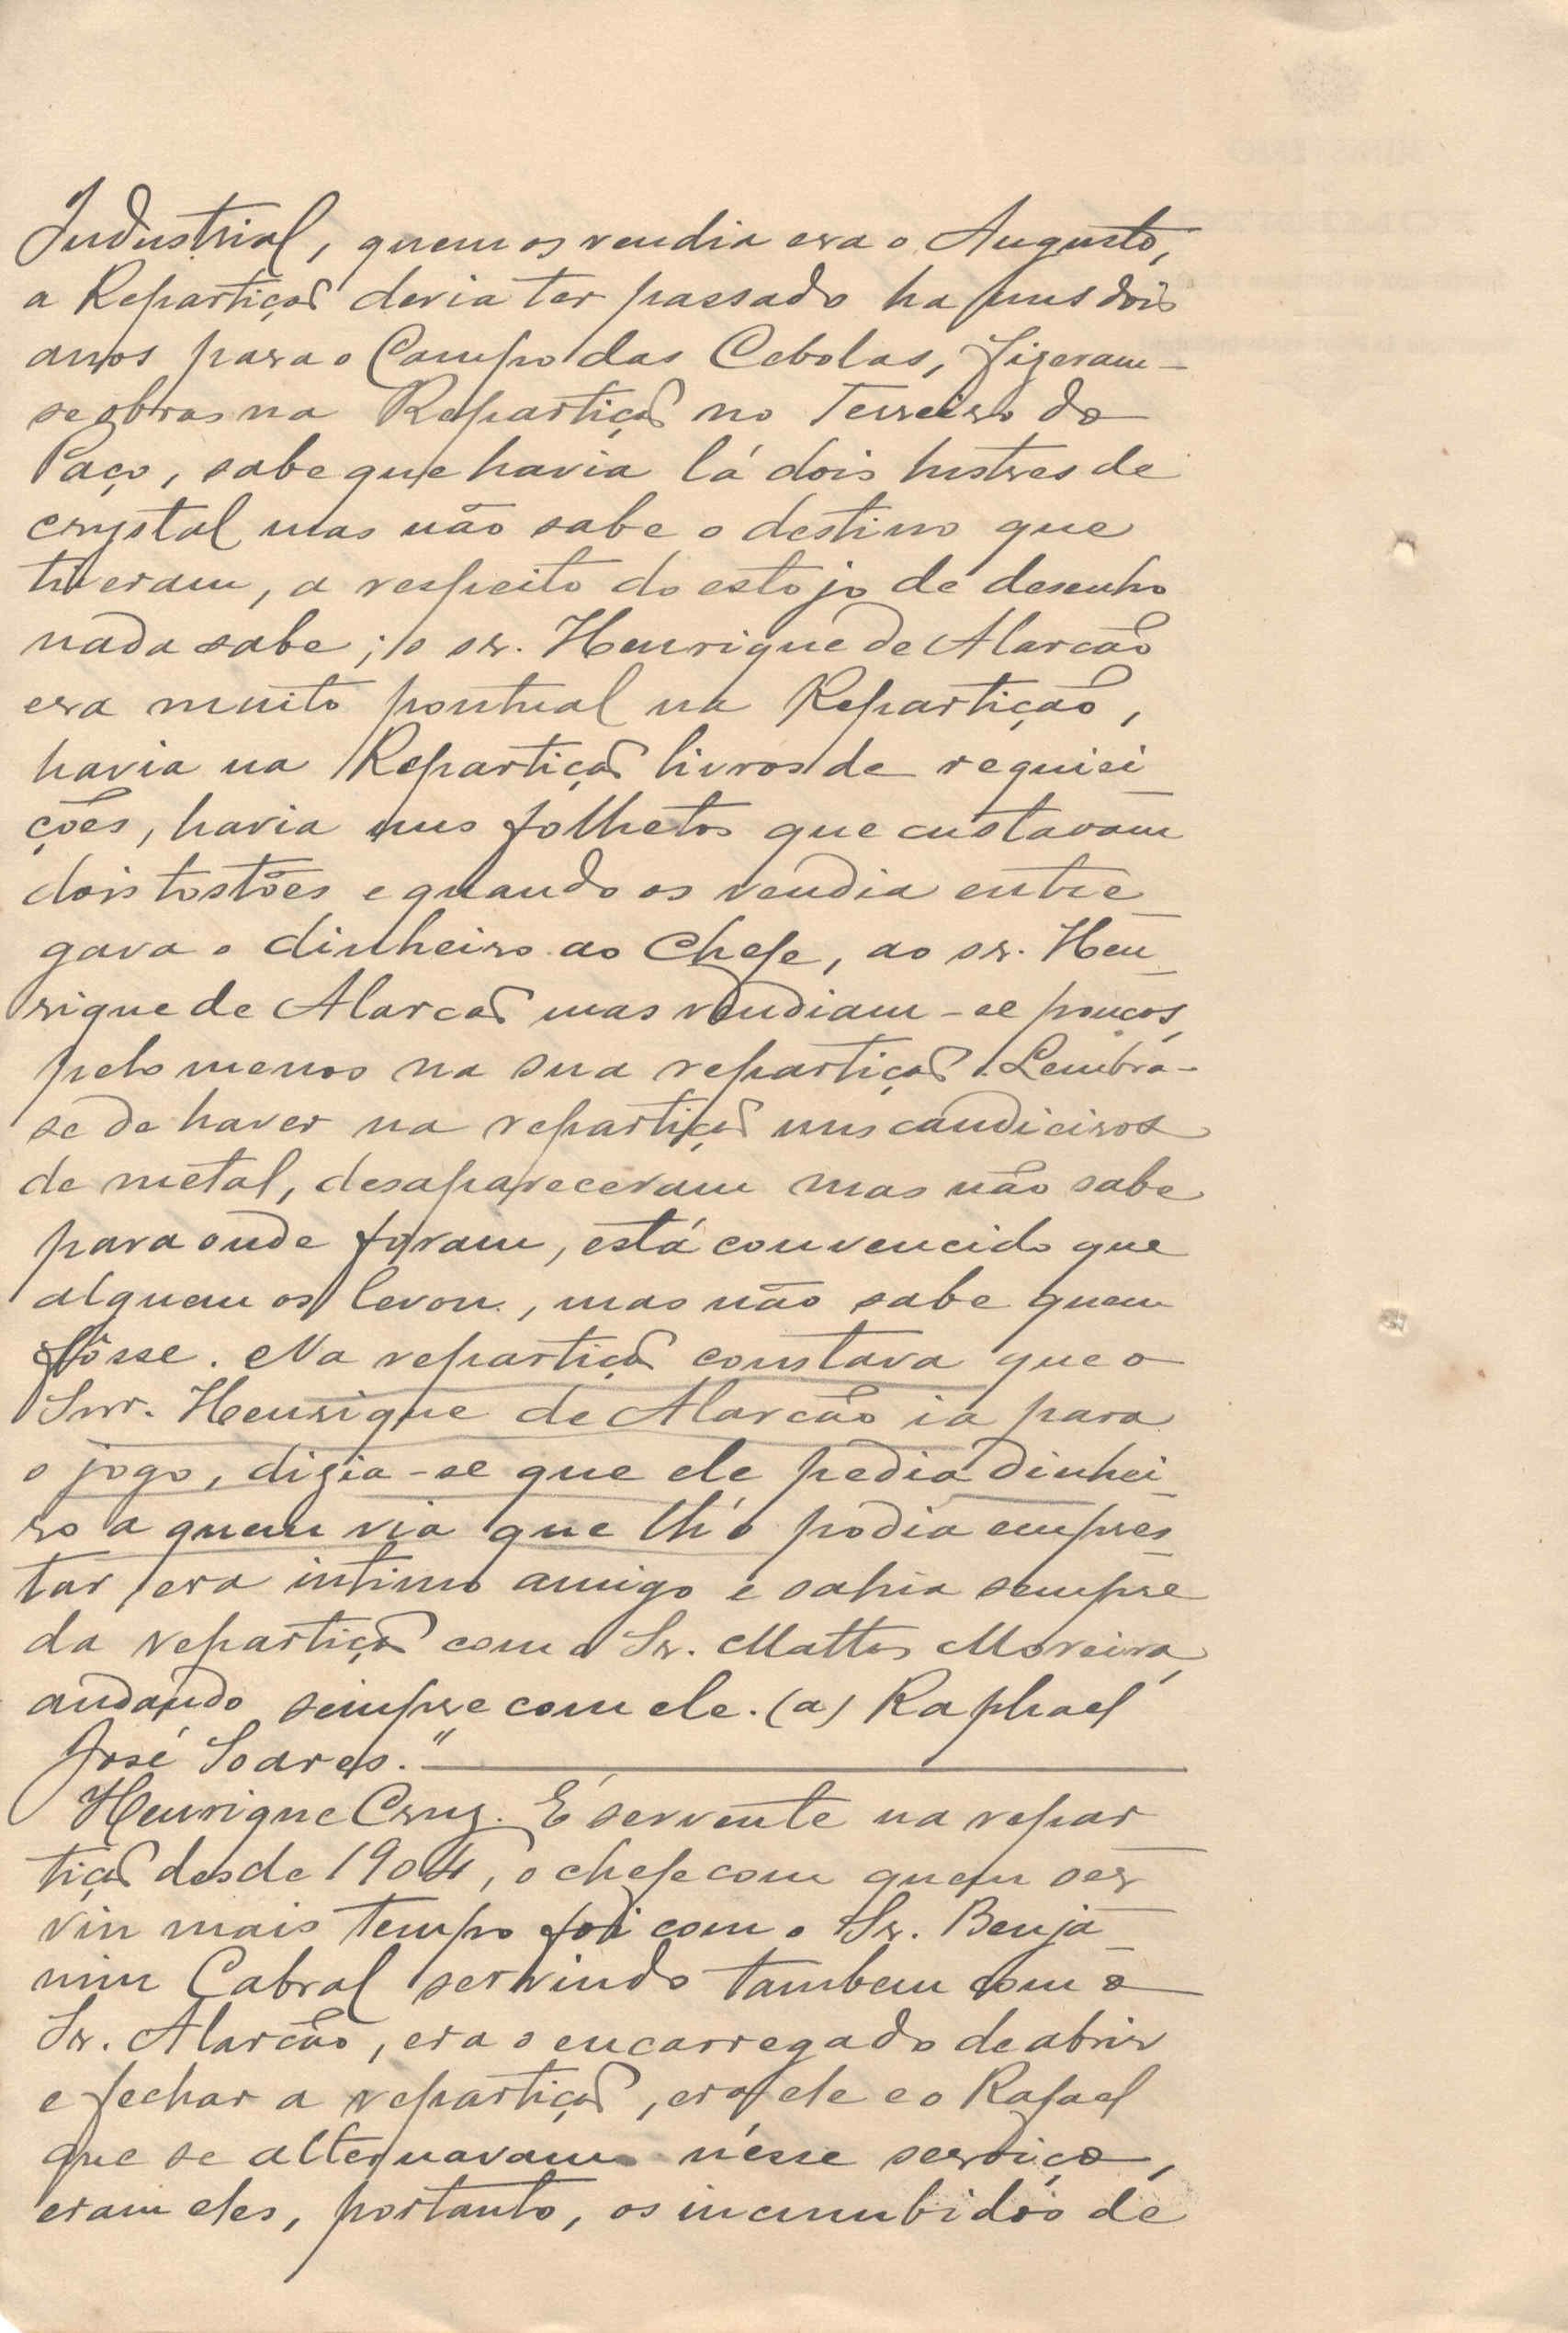 Industrial, quem os vendia era o Augusto,
a Repartição devia ter passado ha uns dois
anos para o Campo das Cebolas, fizeram-
se obras na Repartição no Terreiro do
Paço, sabe que havia lá dois lustres de
crystal mas não sabe o destino que
tiveram, a respeito do estojo de desenho
nada sabe; o sr. Henrique de Alarcão
era muito pontual na Repartição,
havia na Repartição livros de requisi-
ções, havia uns folhetos que custavam
dois tostões e quando os vendia entre-
gava o dinheiro ao Chefe, ao sr. Hen-
rique de Alarcão mas vendiam-se poucos,
pelo menos na sua repartição. Lembra-
se de haver na repartição uns candieiros
de metal, desapareceram mas não sabe
para onde foram, está convencido que
alguem os levou, mas não sabe quem
fôsse. Na repartição constava que o
Snr. Henrique de Alarcão ia para
o jogo, dizia-se que ele pedia dinhei-
ro a quem via que lh'o podia empres-
tar, era intimo amigo e sahia sempre
da repartição com o Sr. Mattos Moreira,
andando sempre com ele. (a) Raphael
José Soares."
Henrique Cruz. É servente na repar-
tição desde 1904, o chefe com quem ser-
viu mais tempo foi com o Sr. Benja-
mim Cabral servindo tambem com o
Sr. Alarcão, era o encarregado de abrir
e fechar a repartição, era ele e o Rafael
que se alternavam n'esse serviço,
eram eles, portanto, os incumbidos de